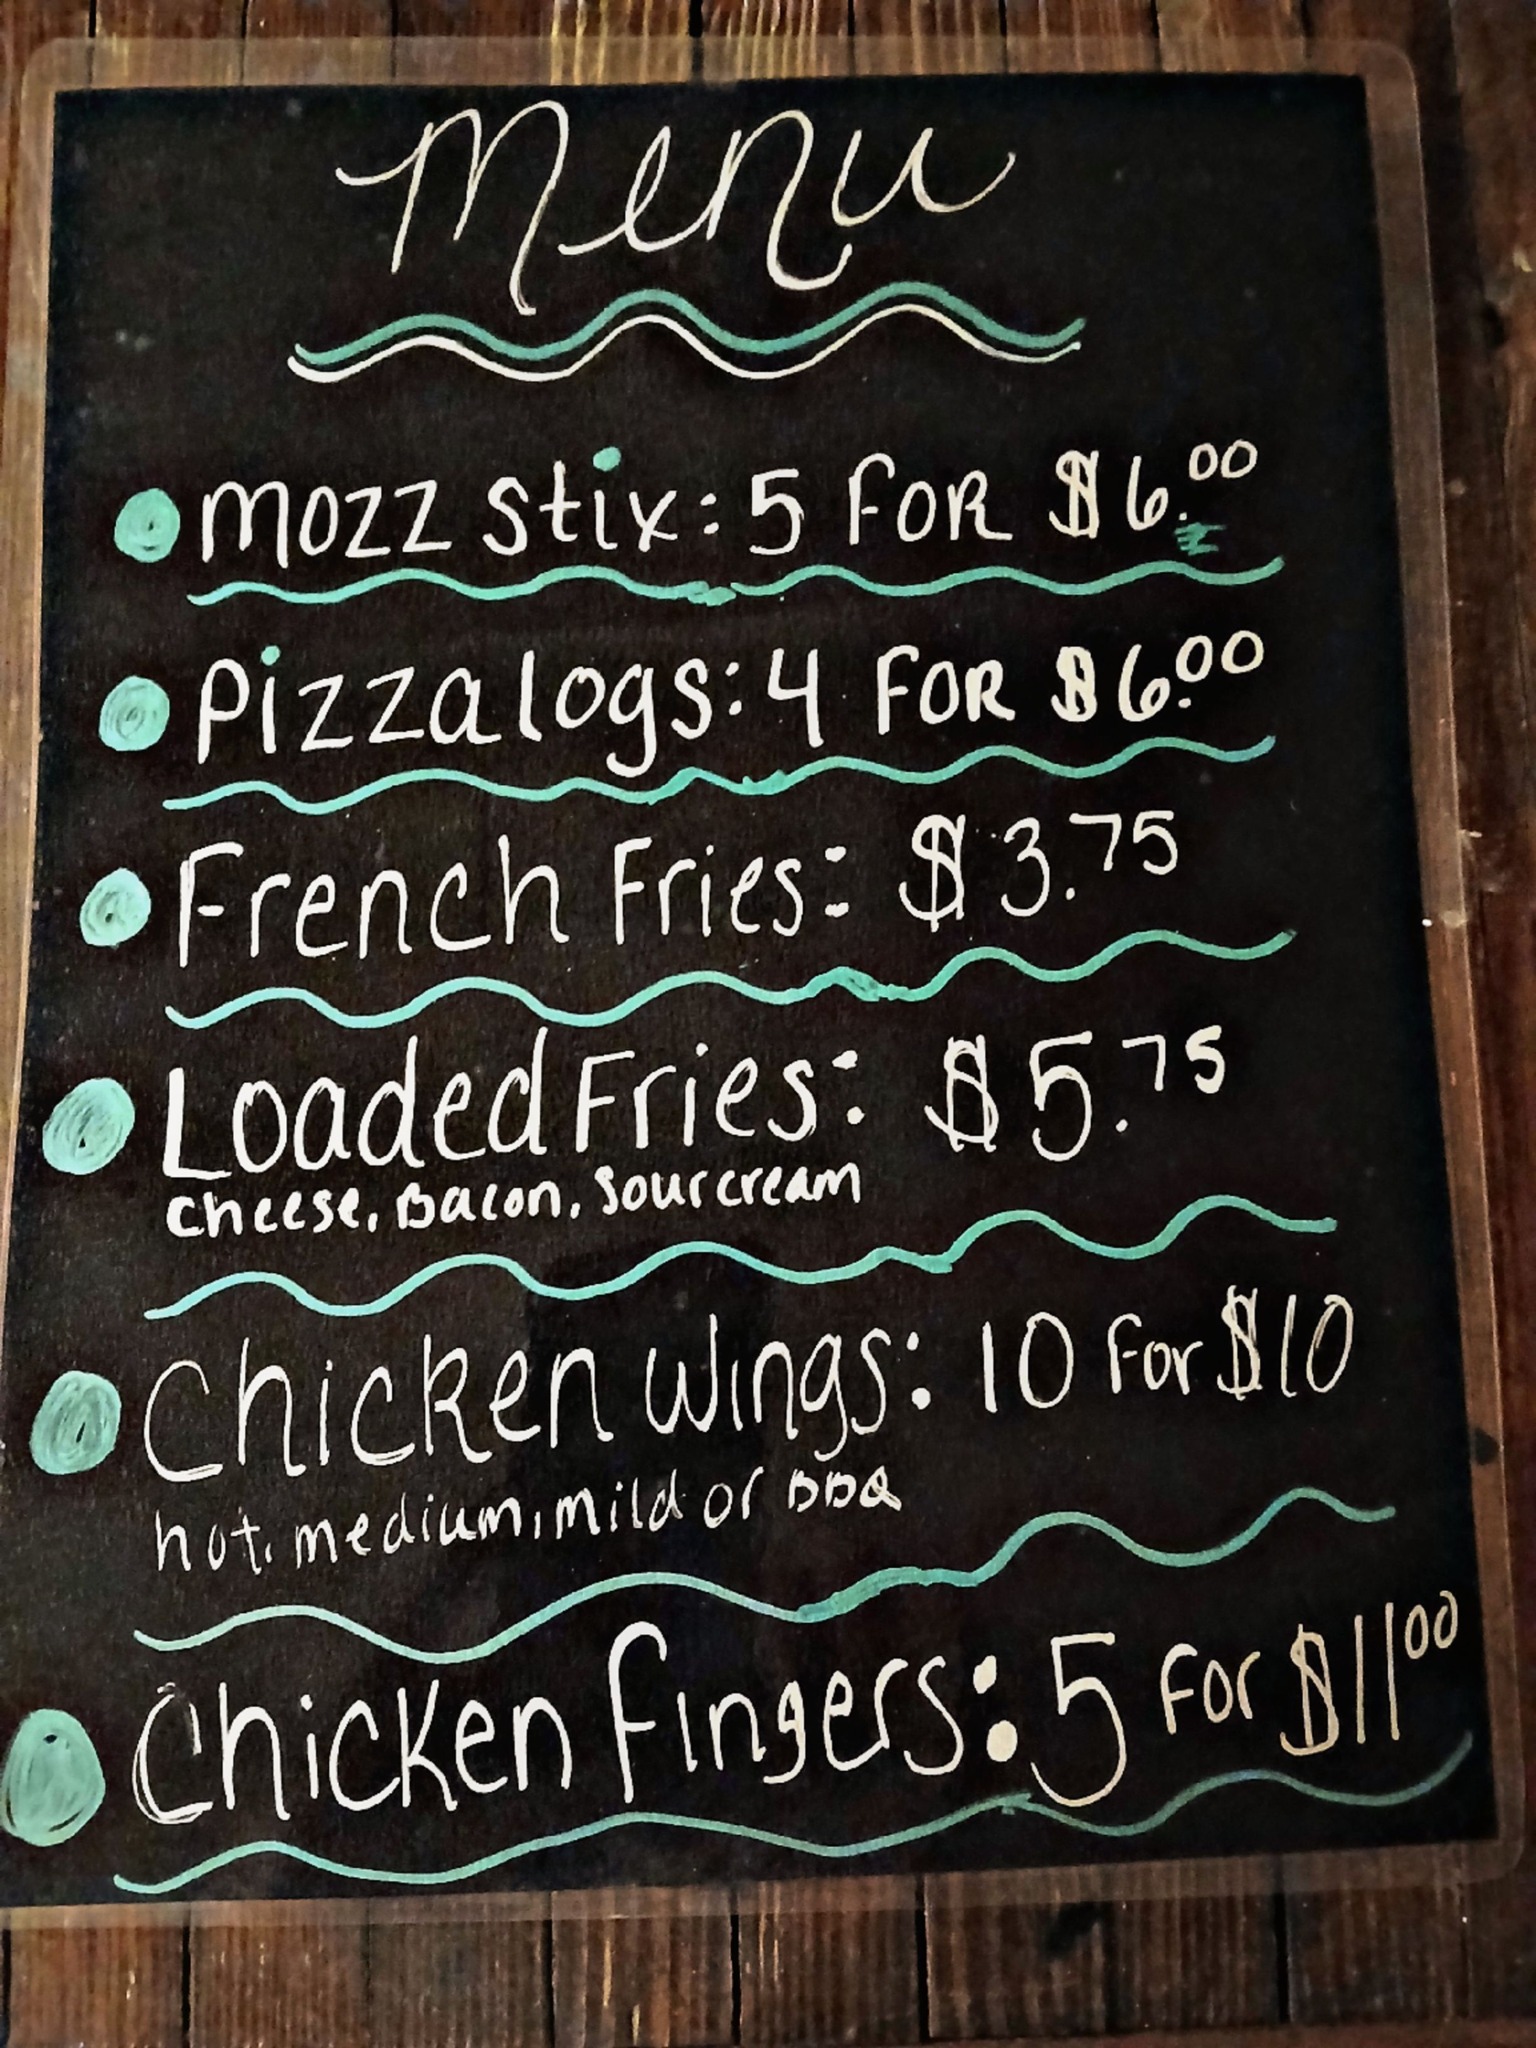 Menu
Mozz Stix: 5 FOR $6.00
Pizza logs: 4 FOR $6.00
French Fries: $3.75
Loaded Fries: $5.75
Cheese, Bacon, Sour cream
Chicken Wings: 10 For $10
hot, medium, mild or BBQ
Chicken Fingers: 5 For $11 00